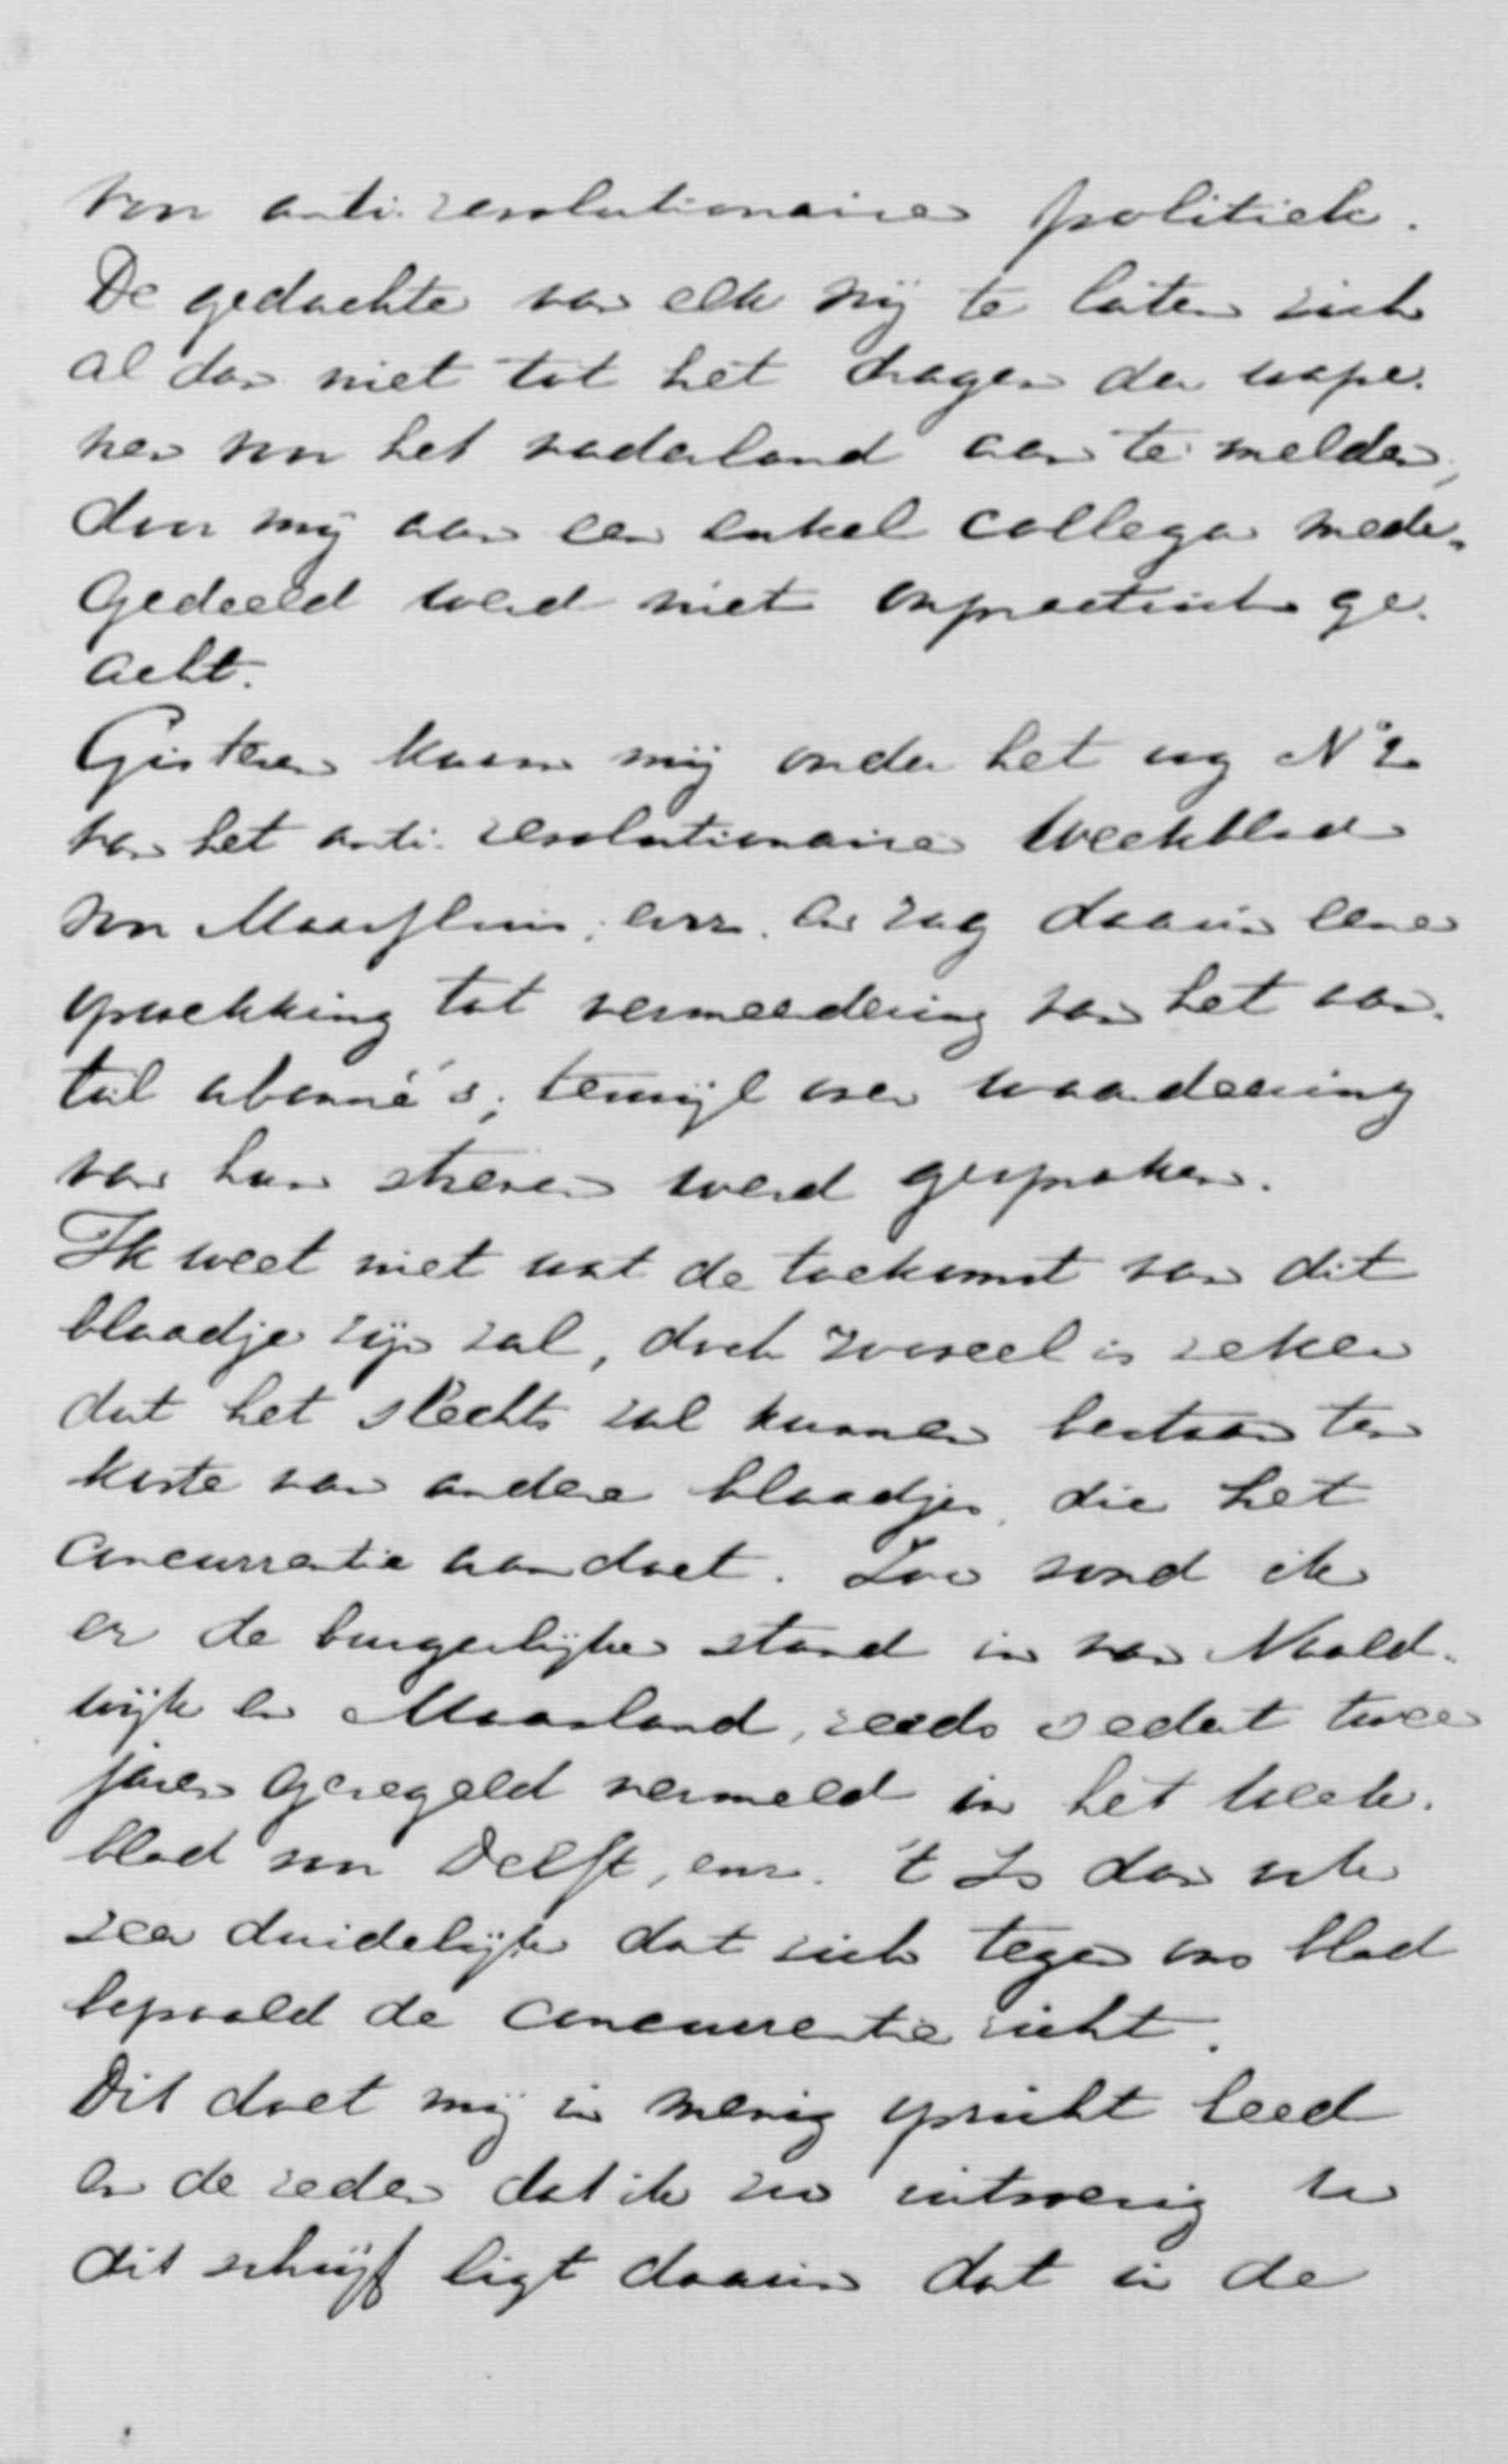 voor anti-revolutionaire politiek.
De gedachte van elk vrij te laten zich
al dan niet tot het dragen der wape-
nen voor het vaderland aan te melden,
door mij aan een enkel collega mede-
gedeeld werd niet onpractisch ge-
acht.
Gisteren kwam mij onder het oog N° 2
van het anti-revolutionaire weekblad
voor Maassluis, enz. en zag daarin eene
opwekking tot vermeerdering van het aan-
tal abonné's; terwijl over waardeering
van hun streven werd gesproken.
Ik weet niet wat de toekomst van dit
blaadje zijn zal, doch zooveel is zeker
dat het slechts zal kunnen bestaan ten
koste van andere blaadjes, die het
concurrentie aandoet. Zoo vond ik
er de burgerlijke stand in van Naald-
wijk en Maasland, reeds sedert twee
jaren geregeld vermeld in het week-
blad voor Delft, enz. 't Is dan ook
zeer duidelijk dat zich tegen ons blad
bepaald de concurrentie richt.
Dit doet mij in menig opzicht leed
en de reden dat ik zoo uitvoerig U
dit schrijf ligt daarin dat in de